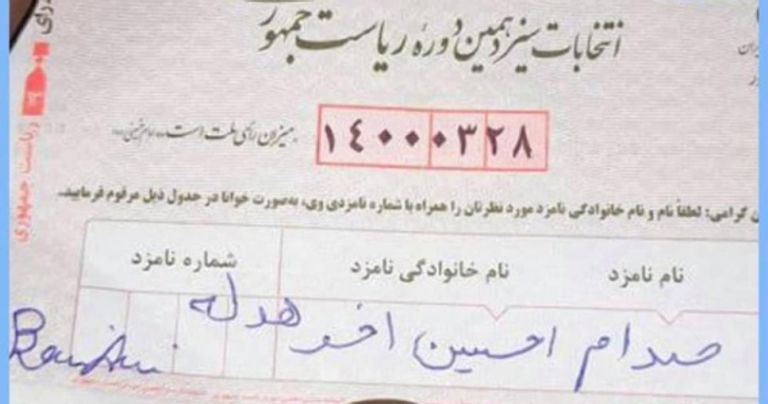 انتخابات سیزدهمین دوره ریاست جمهوری
میزان رأی ملت است. امام خمینی
١٤٠٠٠٣٢٨
گرامی: لطفاً نام و نام خانوادگی نامزد مورد نظرتان را همراه با شماره نامزدی وی، به‌صورت خوانا در جدول ذیل مرقوم فرمایید.
نام نامزد نام خانوادگی نامزد شماره نامزد
صدام احسین اخو هدله
ریاست جمهوری
رای